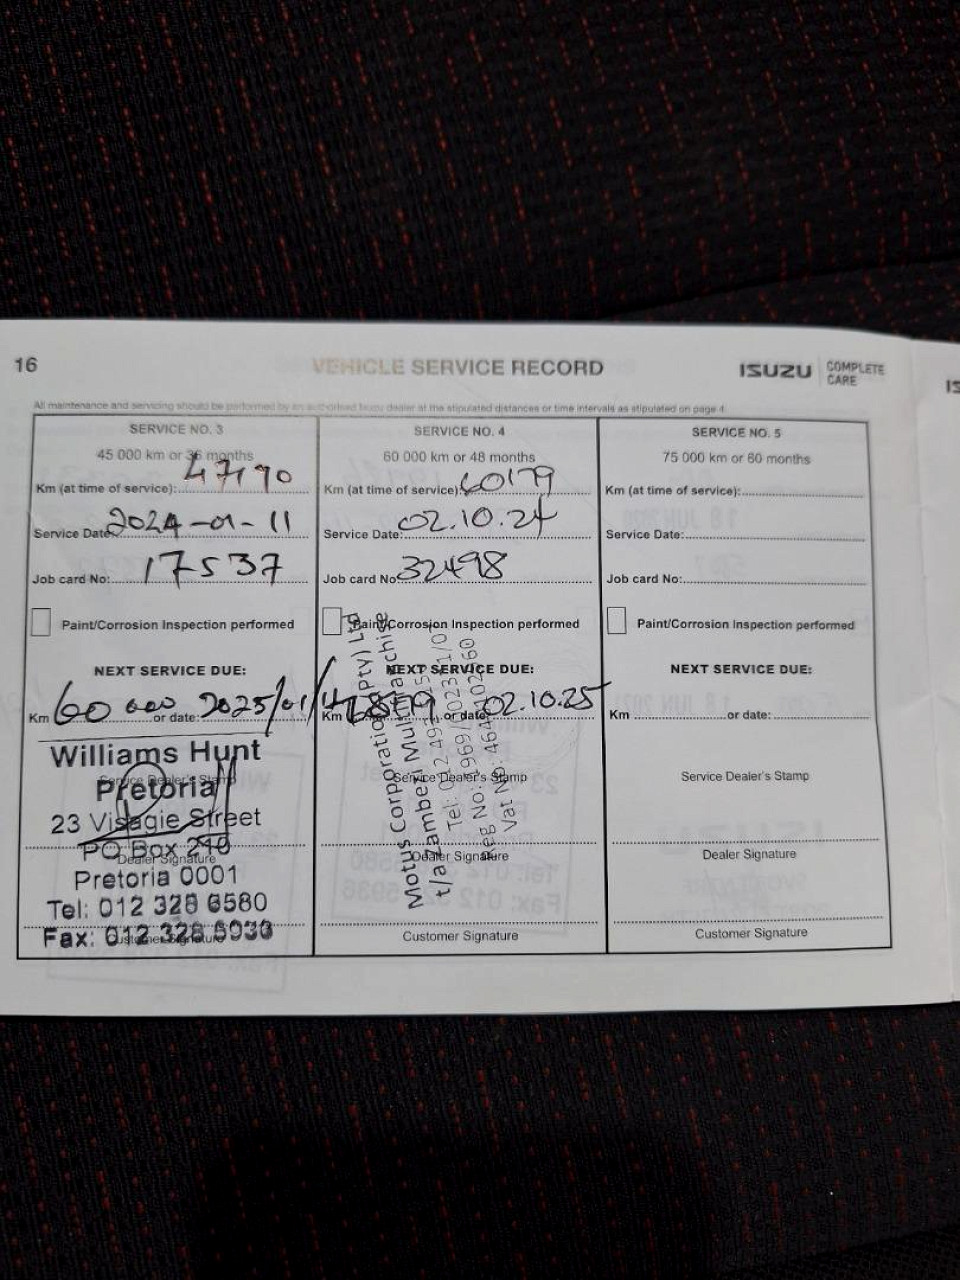 16
VEHICLE SERVICE RECORD
ISUZU COMPLETE CARE
IS
All maintenance and servicing should be performed by an authorised Isuzu dealer at the stipulated distances or time intervals as stipulated on page 4
SERVICE NO. 3
45 000 km or 36 months
Km (at time of service): 47190
Service Date: 2024-01-11
Job card No: 17537
Paint/Corrosion Inspection performed
NEXT SERVICE DUE:
Km 60 000 or date: 2025/01/
Williams Hunt
Service Dealer's Stamp
Pretoria
23 Visagie Street
PO Box
Dealer Signature
Pretoria 0001
Tel: 012 328 6580
Fax: 012 328 5936
Customer Signature
SERVICE NO. 4
60 000 km or 48 months
Km (at time of service): 60179
Service Date: 02.10.24
Job card No 32498
Paint/Corrosion Inspection performed
NEXT SERVICE DUE:
Km or date: 02.10.25
Motus Corporation (Pty) Ltd
t/a Zambezi Multifranchise
Tel: 012
Reg No:
Vat No:
Service Dealer's Stamp
Dealer Signature
Customer Signature
SERVICE NO. 5
75 000 km or 60 months
Km (at time of service):
Service Date:
Job card No:
Paint/Corrosion Inspection performed
NEXT SERVICE DUE:
Km or date:
Service Dealer's Stamp
Dealer Signature
Customer Signature